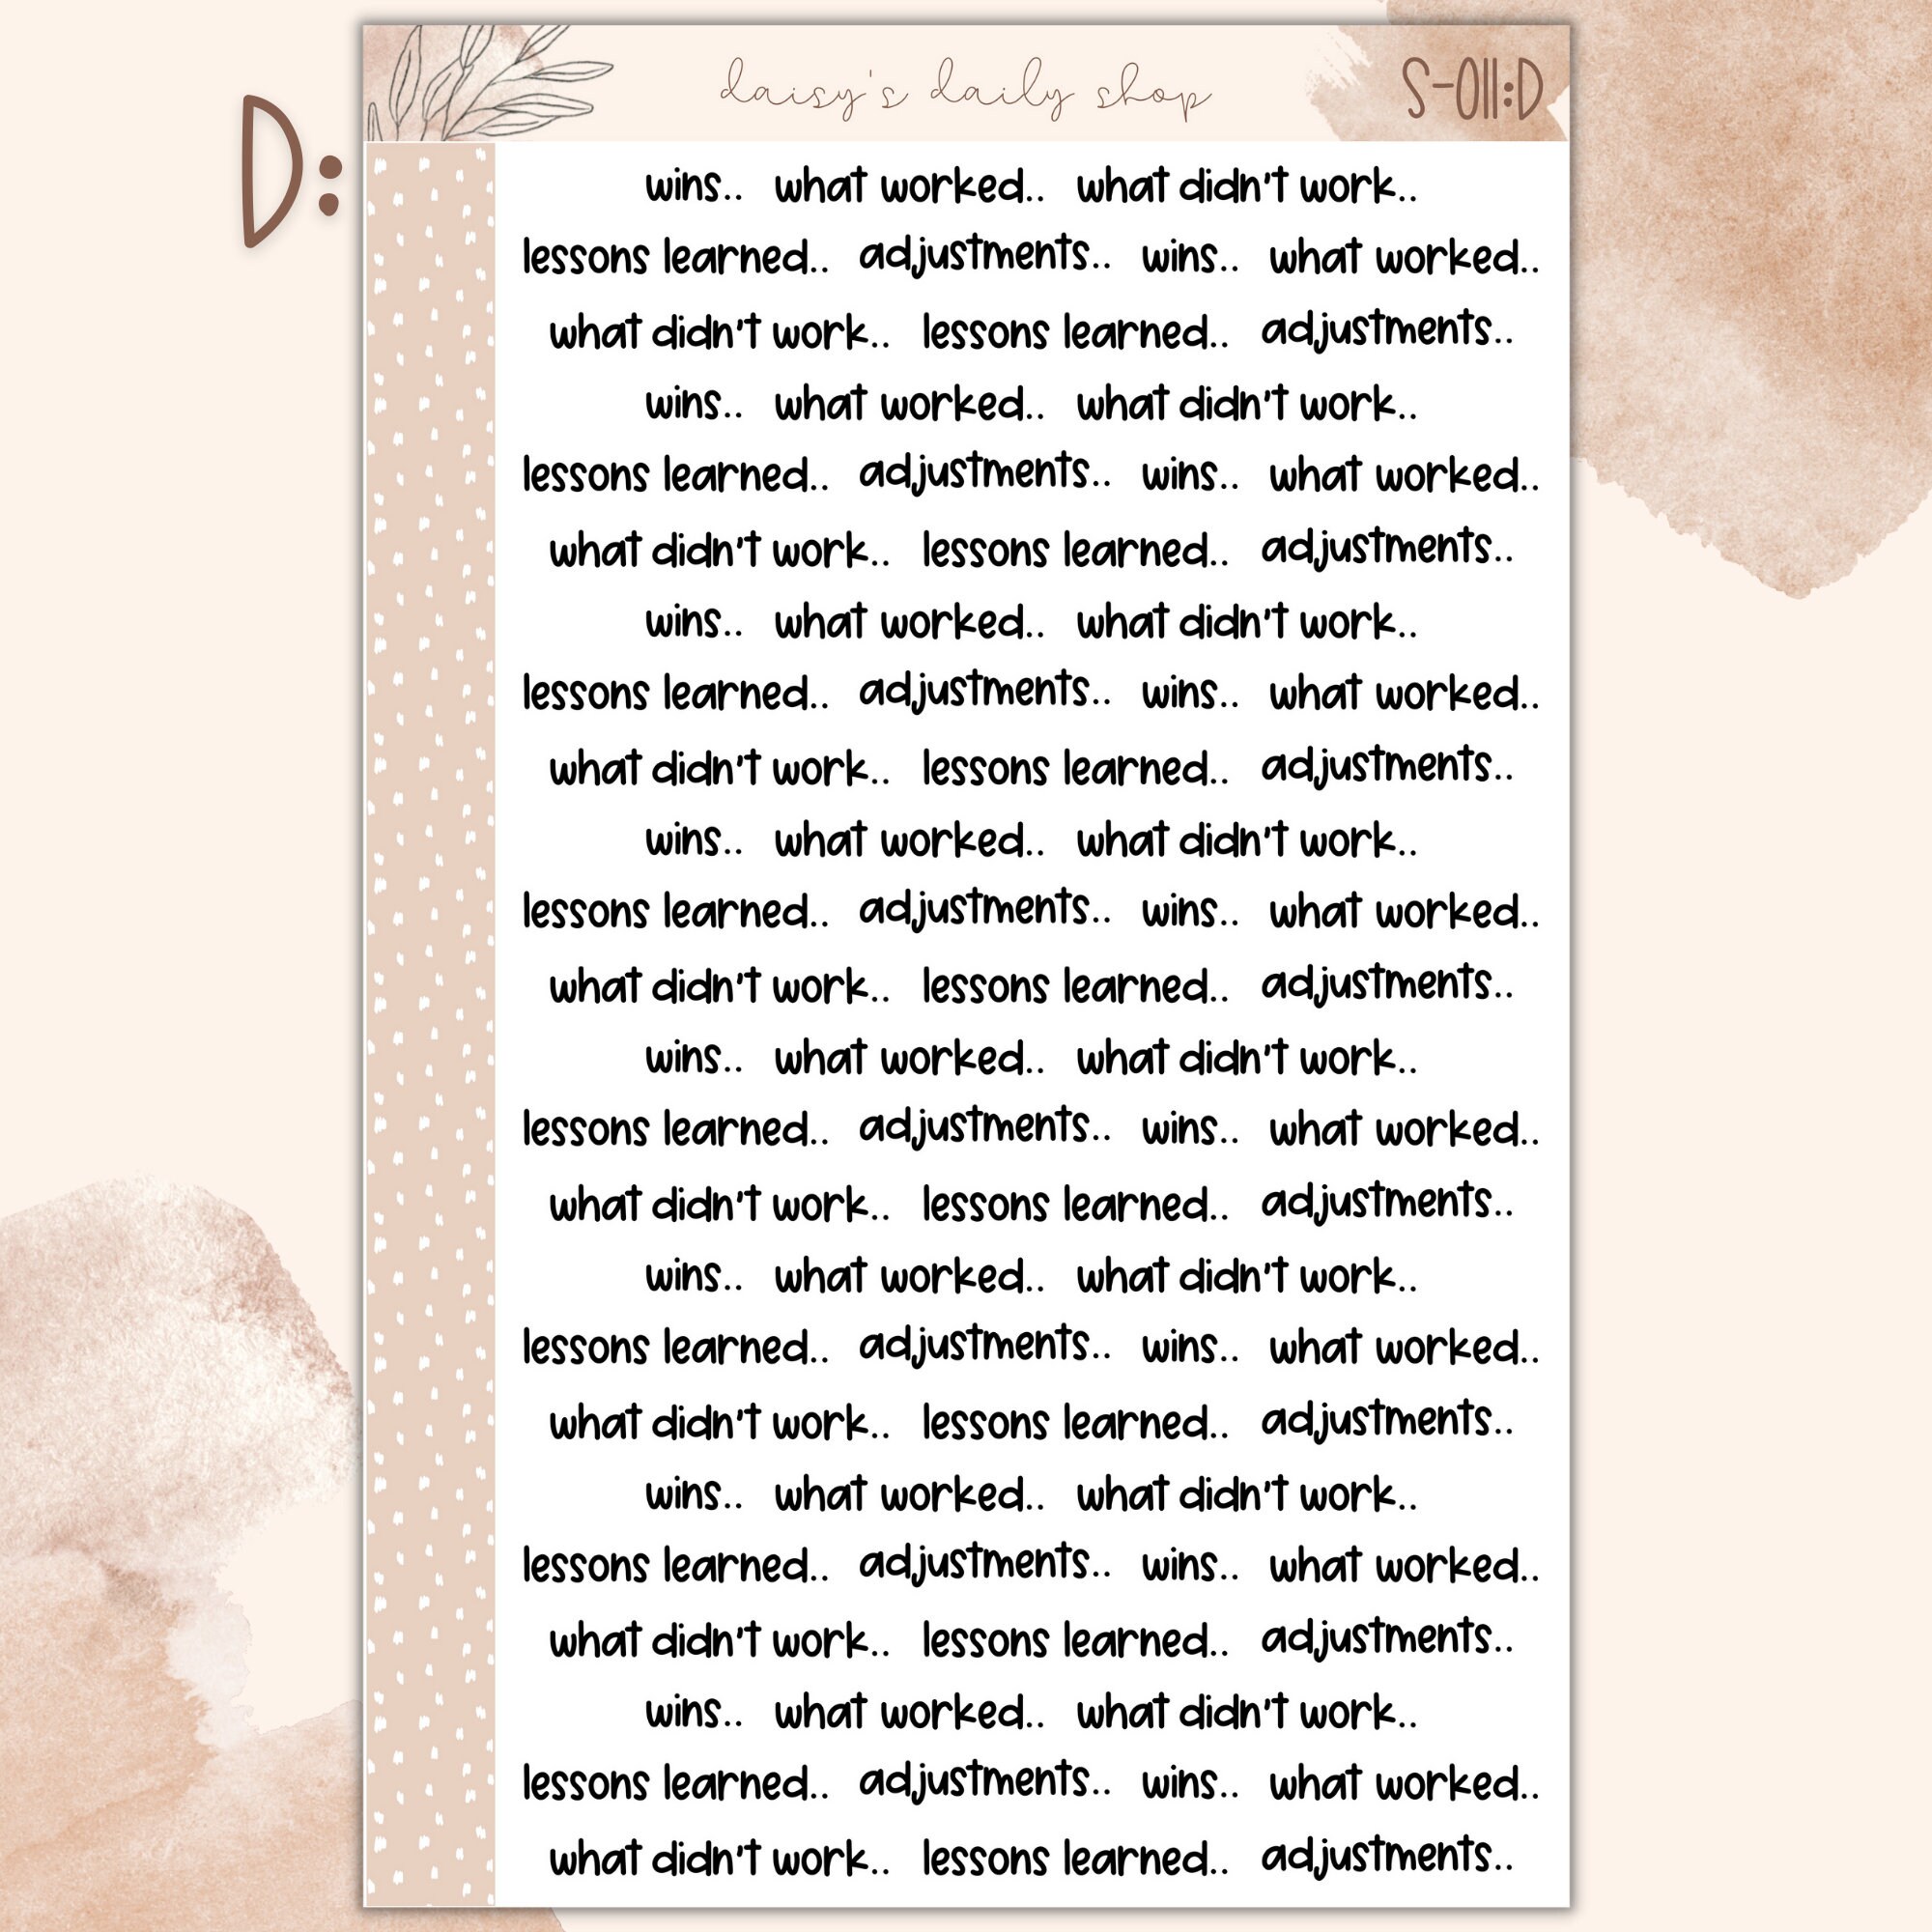 D:
daisy's daily shop S-011:D
wins.. what worked.. what didn't work..
lessons learned.. adjustments.. wins.. what worked..
what didn't work.. lessons learned.. adjustments..
wins.. what worked.. what didn't work..
lessons learned.. adjustments.. wins.. what worked..
what didn't work.. lessons learned.. adjustments..
wins.. what worked.. what didn't work..
lessons learned.. adjustments.. wins.. what worked..
what didn't work.. lessons learned.. adjustments..
wins.. what worked.. what didn't work..
lessons learned.. adjustments.. wins.. what worked..
what didn't work.. lessons learned.. adjustments..
wins.. what worked.. what didn't work..
lessons learned.. adjustments.. wins.. what worked..
what didn't work.. lessons learned.. adjustments..
wins.. what worked.. what didn't work..
lessons learned.. adjustments.. wins.. what worked..
what didn't work.. lessons learned.. adjustments..
wins.. what worked.. what didn't work..
lessons learned.. adjustments.. wins.. what worked..
what didn't work.. lessons learned.. adjustments..
wins.. what worked.. what didn't work..
lessons learned.. adjustments.. wins.. what worked..
what didn't work.. lessons learned.. adjustments..